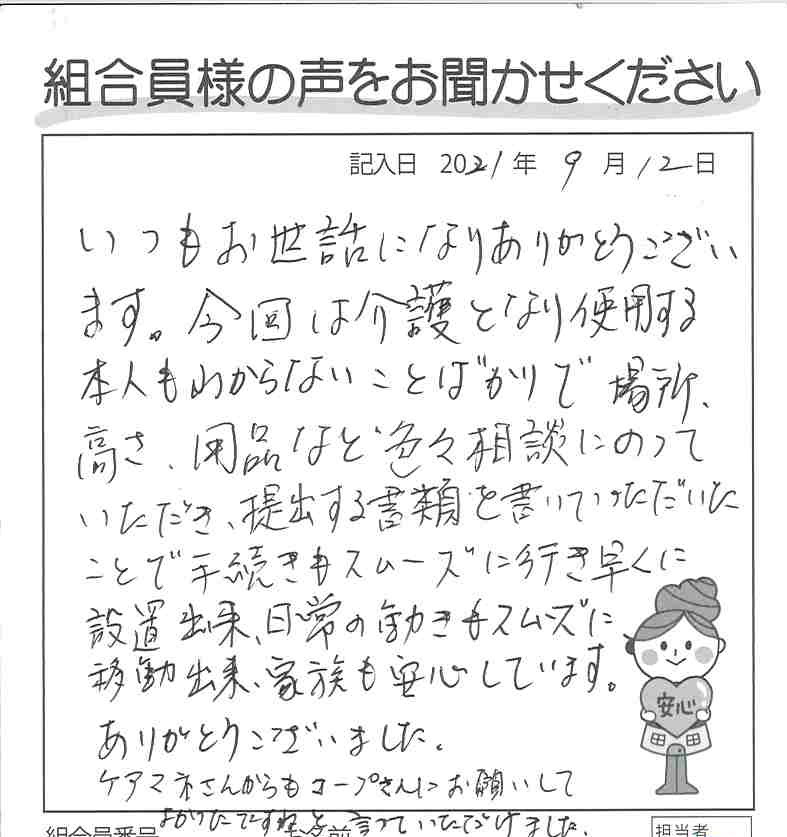 組合員様の声をお聞かせください
記入日 2021年 9月12日
いつもお世話になりありがとうござい
ます。今回は介護となり使用する
本人もわからないことばかりで場所、
高さ、用品など色々相談にのって
いただき、提出する書類を書いていただいた
ことで手続きもスムーズに行き早くに
設置出来、日常の動きもスムーズに
移動出来、家族も安心しています。
安心
ありがとうございました。
ケアマネさんからもコープさんにお願いして
よかったですねと言っていただけました。
組合員番号 お名前 担当者